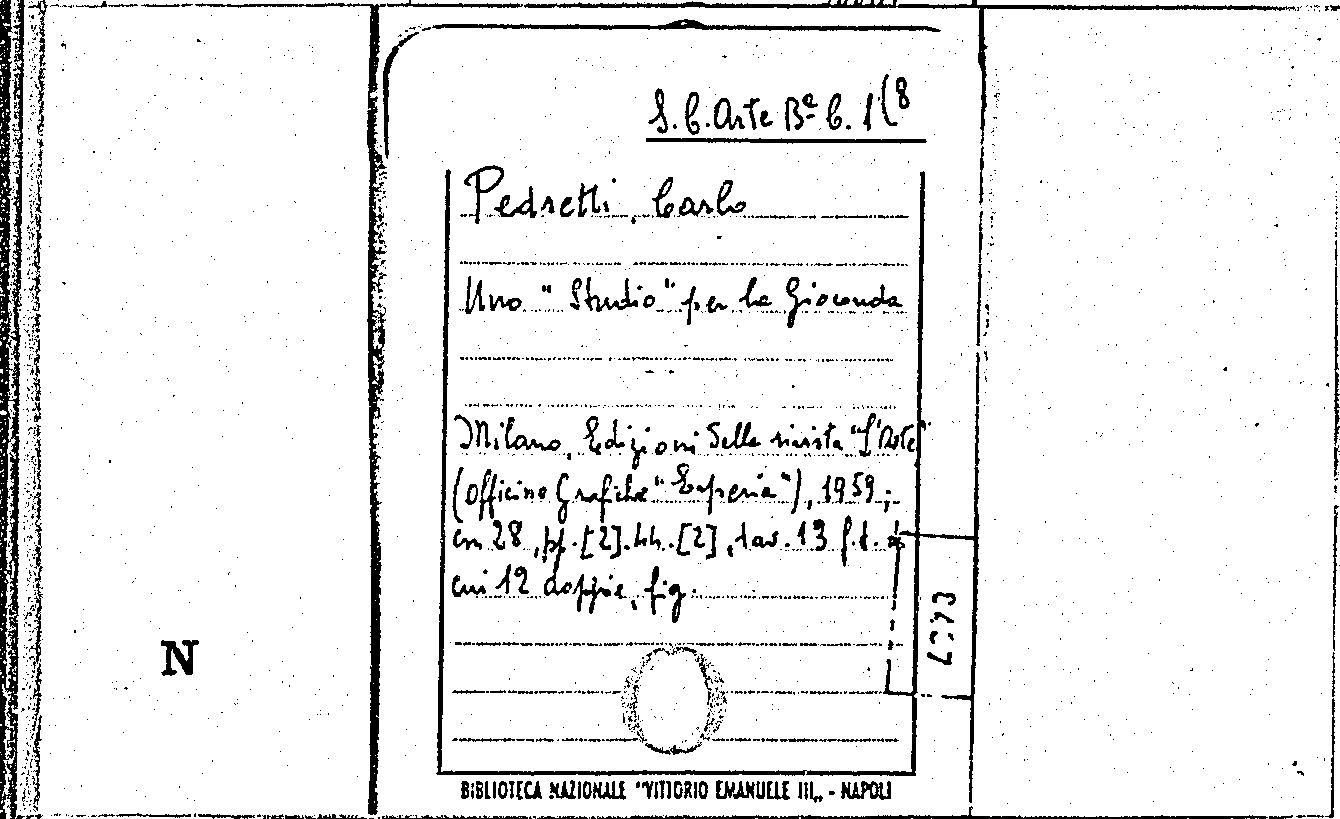 S.C. Arte Bª C. 1(8
Pedretti, Carlo
Uno "Studio" per la Gioconda
Milano, Edizioni della rivista "L'Arte"
(Officine Grafiche "Esperia"), 1959;
cm 28, pp. [2]. [2], tav. 13 f.t. di
cui 12 doppie, fig.
N
BIBLIOTECA NAZIONALE "VITTORIO EMANUELE III„ - NAPOLI